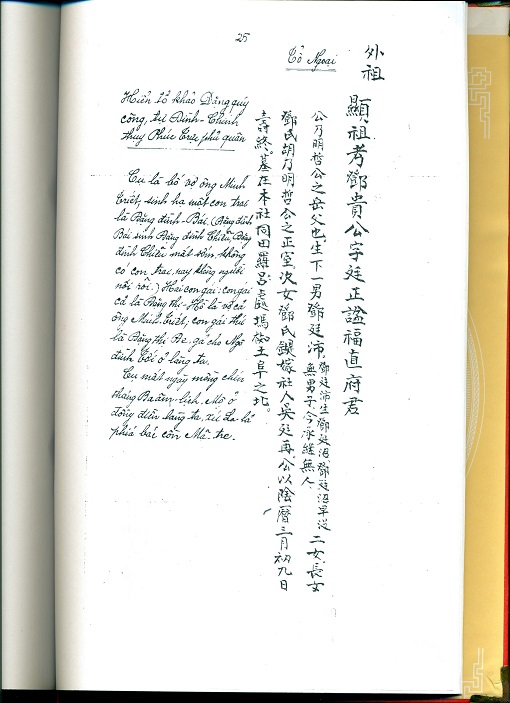 25
Tổ Ngoại
Hiển tổ khảo Đặng quý
công, tự Đình-Chính
thụy Phúc Trực phủ quân
Cụ là bố vợ ông Minh
Triết, sinh hạ một con trai
là Đặng đình-Bái. (Đặng đình
Bái sinh Đặng đình Chiểu, Đặng
đình Chiểu mất sớm, không
có con trai, nay không người
nối rồi.) Hai con gái: con gái
cả là Đặng thị-Hồ là vợ cả
ông Minh Triết, con gái thứ
là Đặng thị gả cho Ngô
đình ở làng ta.
Cụ mất ngày mồng chín
tháng Ba âm lịch. Mộ ở
đồng điền làng ta, xứ La lã
phía bắc cồn Mã-tre.
外祖
顯祖考鄧貴公字廷正諡福直府君
公乃明哲公之岳父也生下一男鄧廷沛鄧廷沛生鄧廷沼鄧廷沼早沒無男子今承継無人二女長女
鄧氏胡乃明哲公之正室次女鄧氏嫁社人吳廷再公以陰曆三月初九日
壽終。墓在本社同田羅呂處塢椥土阜之北。